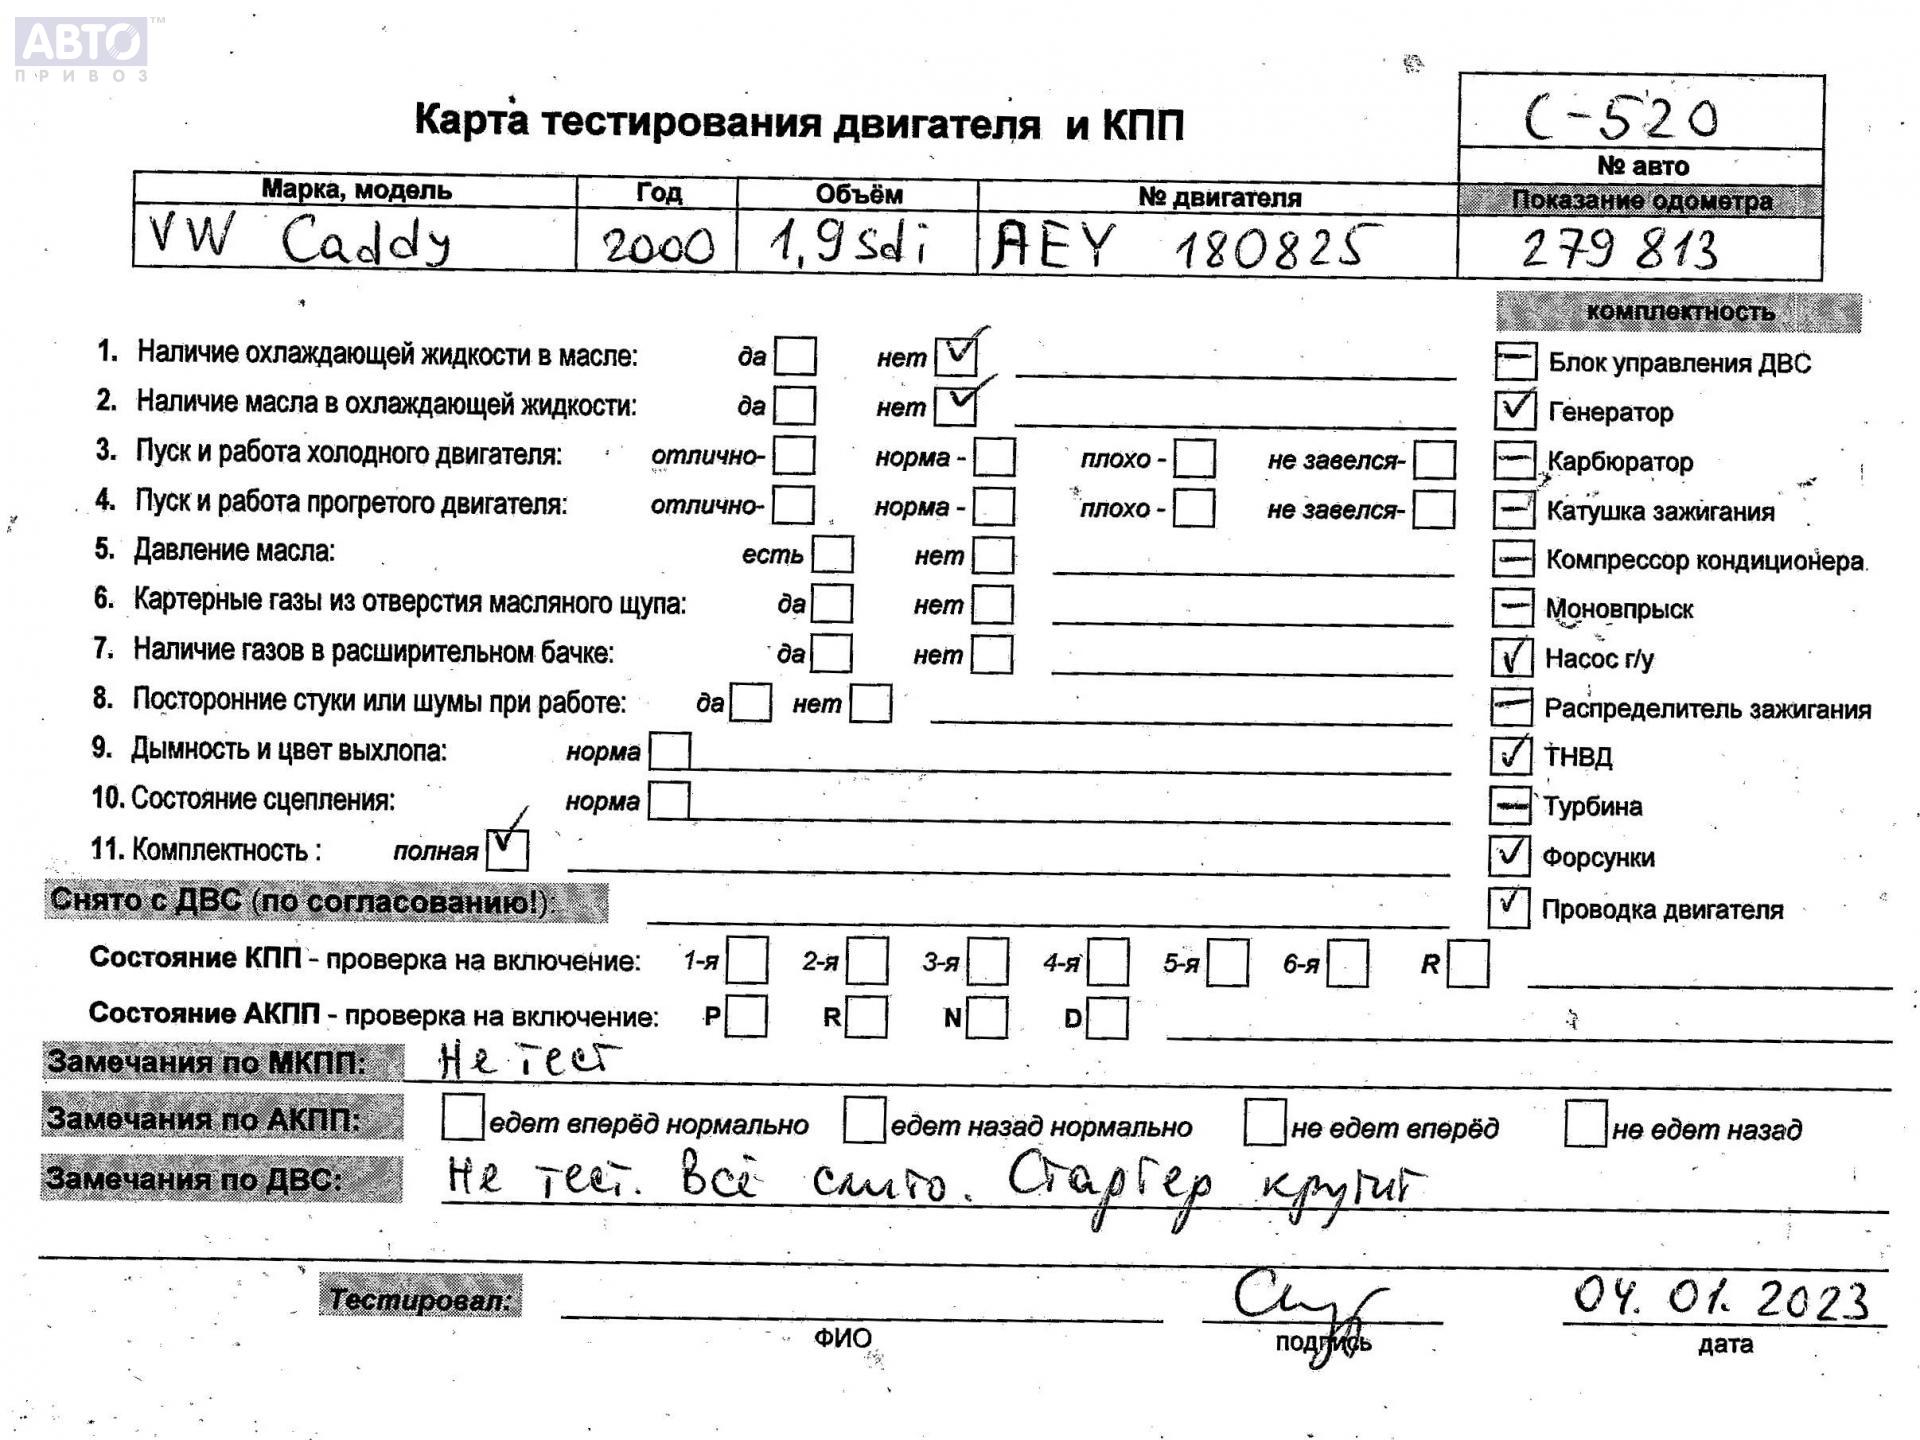 АВТО™
ПРИВОЗ
Карта тестирования двигателя и КПП
С-520
№ авто
Марка, модель Год Объём № двигателя Показание одометра
VW Caddy 2000 1,9sdi AEY 180825 279 813
комплектность
1. Наличие охлаждающей жидкости в масле: да нет
Блок управления ДВС
2. Наличие масла в охлаждающей жидкости: да нет
Генератор
3. Пуск и работа холодного двигателя: отлично- норма - плохо - не завелся-
Карбюратор
4. Пуск и работа прогретого двигателя: отлично- норма - плохо - не завелся-
Катушка зажигания
5. Давление масла: есть нет
Компрессор кондиционера
6. Картерные газы из отверстия масляного щупа: да нет
Моновпрыск
7. Наличие газов в расширительном бачке: да нет
Насос г/у
8. Посторонние стуки или шумы при работе: да нет
Распределитель зажигания
9. Дымность и цвет выхлопа: норма
ТНВД
10. Состояние сцепления: норма
Турбина
11. Комплектность : полная
Форсунки
Снято с ДВС (по согласованию!):
Проводка двигателя
Состояние КПП - проверка на включение: 1-я 2-я 3-я 4-я 5-я 6-я R
Состояние АКПП - проверка на включение: P R N D
Замечания по МКПП: Не тест
Замечания по АКПП: едет вперёд нормально едет назад нормально не едет вперёд не едет назад
Замечания по ДВС: Не тест. Всё слито. Стартер крутит
Тестировал: 04.01.2023
ФИО подпись дата